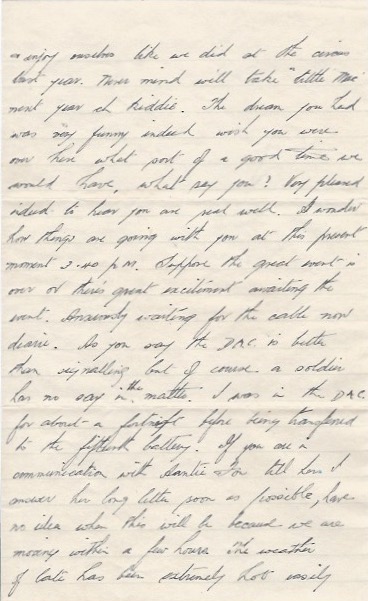 enjoy ourselves like we did at the circus
last year. Never mind will take "little Mac"
next year eh kiddie. The dream you had
was very funny indeed wish you were
over here what sort of a good time we
would have, what say you? Very pleased
indeed to hear you are real well. I wonder
how things are going with you at this present
moment 3.40 p.m. Suppose the great event is
over or there's great excitement awaiting the
event. Anxiously waiting for the cable now
dearie. As you say the D.A.C. is better
than signalling but of course a soldier
has no say in the matter. I was in the D.A.C.
for about a fortnight before being transferred
to the fifteenth battery. If you are in
communication with Auntie tell her I
answer her long letter soon as possible, have
no idea when this will be because we are
moving within a few hours. The weather
of late has been extremely hot easily